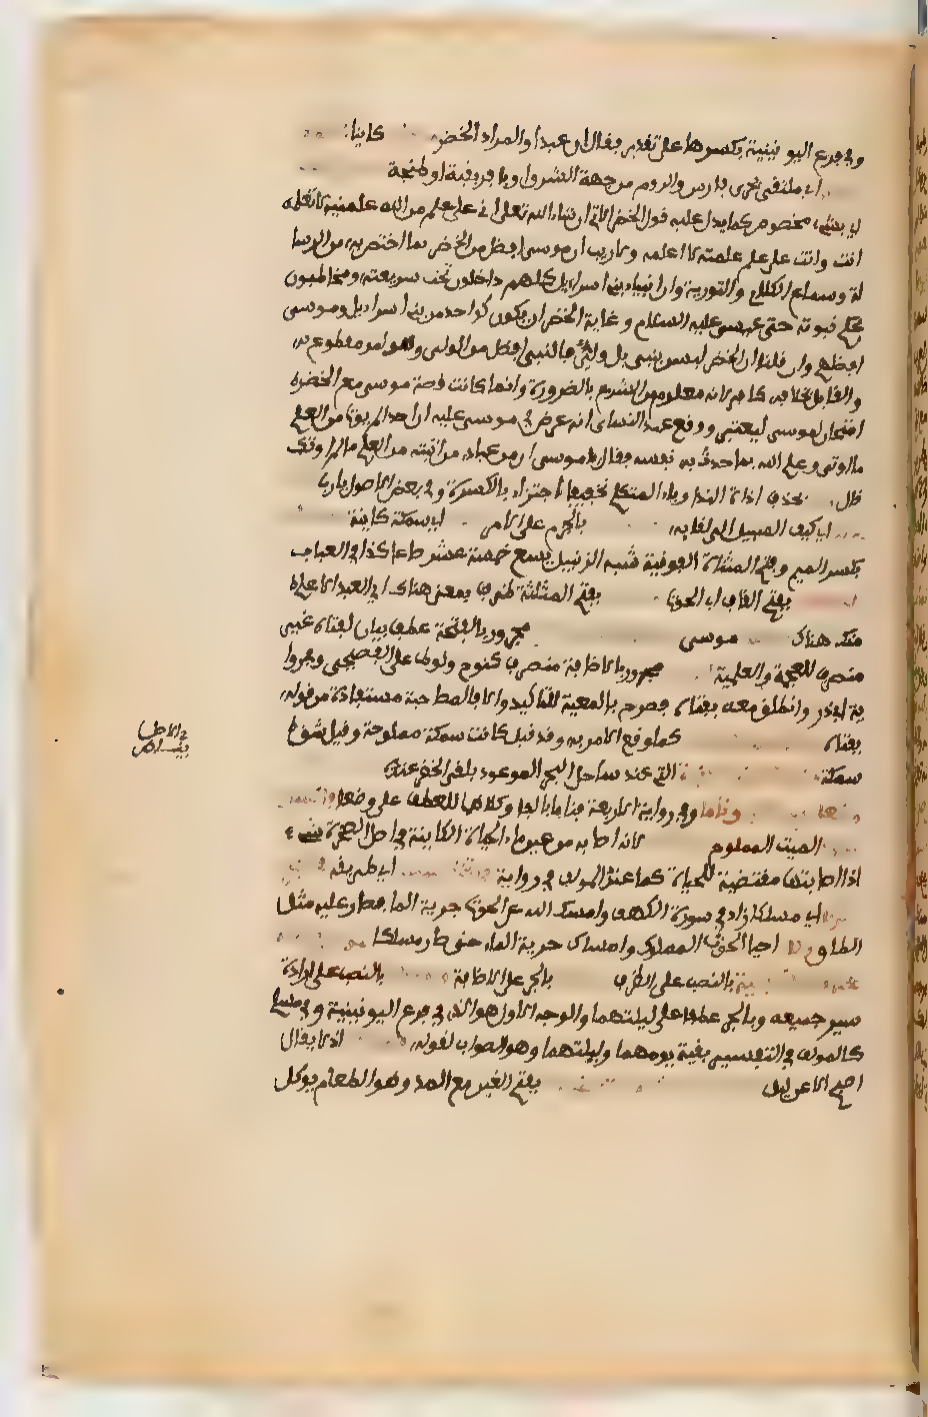 وفي فرع اليونينية بكسرها على تقدير فقال ان عبدا والمراد الخضر كاينا
اي ملتقى بحرى فارس والروم من جهة الشرق او بافريقية او طنجة
اي بشيء مخصوص كما يدل عليه قول الخضر الاتي ان شاء الله تعالى اني على علم من الله علمنيه لا تعلمه
انت وانت على علم علمكه لا اعلمه ولا ريب ان موسى افضل من الخضر بما اختص به من الرسا
لة وسماع الكلام والتورية وان انبياء بني اسرايل كلهم داخلون تحت شريعته ومخاطبون
بحكم نبوته حتى عيسى عليه السلام وغاية الخضر ان يكون كواحد من بني اسرايل وموسى
افضلهم وان قلنا ان الخضر ليس بنبي بل ولي فالنبي افضل من الولي وهو امر مقطوع به
والقايل بخلافه كافر لانه معلوم من الشرع بالضرورة وانما كانت قصة موسى مع الخضر
امتحان لموسى ليعتبر ووقع عند النسائي انه عرض في موسى عليه ان احدا لم يوت من العلم
ما اوتي وعلم الله بما حدث به نفسه فقال يا موسى ان من عبادي من اتيته من العلم ما لم اوتك
قال بحذف اداة الندا وياء المتكلم تخفيفا اجتزاء بالكسرة وفي بعض الاصول يا رب
اي كيف السبيل الى لقايه بالجزم على الامر اي سمكة كاينة
بكسر الميم وفتح المثناة الفوقية شبه الزنبيل يسع خمسة عشر صاعا كذا في العباب
بفتح القاف اي الحوت بفتح المثلثة ظرف بمعنى هناك اي العبد الاعلم
منك هناك موسى مجرور بالفتحة عطف بيان لفتاه غير
منصرف للعجمة والعلمية مجرور بالاضافة منصرف كنوح ولوط على الفصيح وفي روا
ية ابي ذر وانطلق معه بفتاه فصرح بالمعية للتاكيد والا فالمصاحبة مستفادة من قوله
بفتاه كما وقع الامر به وقد قيل كانت سمكة مملوحة وقيل شق
سمكة التي عند ساحل البحر الموعود بلقى الخضر عنده
وناما وفي رواية الاربعة فناما بالفا وكلاهما للعطف على وضعا
الميت المملوح لانه اصابه من عين ماء الحياة الكاينة في اصل الصخرة شيء
اذ اصابتها مقتضية للحياة كما عند المولف في رواية اي طريقه
اي مسلكا زاد في سورة الكهف وامسك الله عن الحوت جرية الما فصار عليه مثل
الطاق احيا الحوت المملوح وامساك جرية الماء حتى صار مسلكا
بقية بالنصب على الظرف بالجر على الاضافة بالنصب على ارادة
سير جميعه وبالجر عطفا على ليلتهما والوجه الاول هو الذي في فرع اليونينية وفي مسلم
كالمولف في التفسير بقية يومهما وليلتهما وهو الصواب لقوله اذ لا يقال
اصبح الا عن ليل بفتح الغين مع المد وهو الطعام يوكل
في الاصل